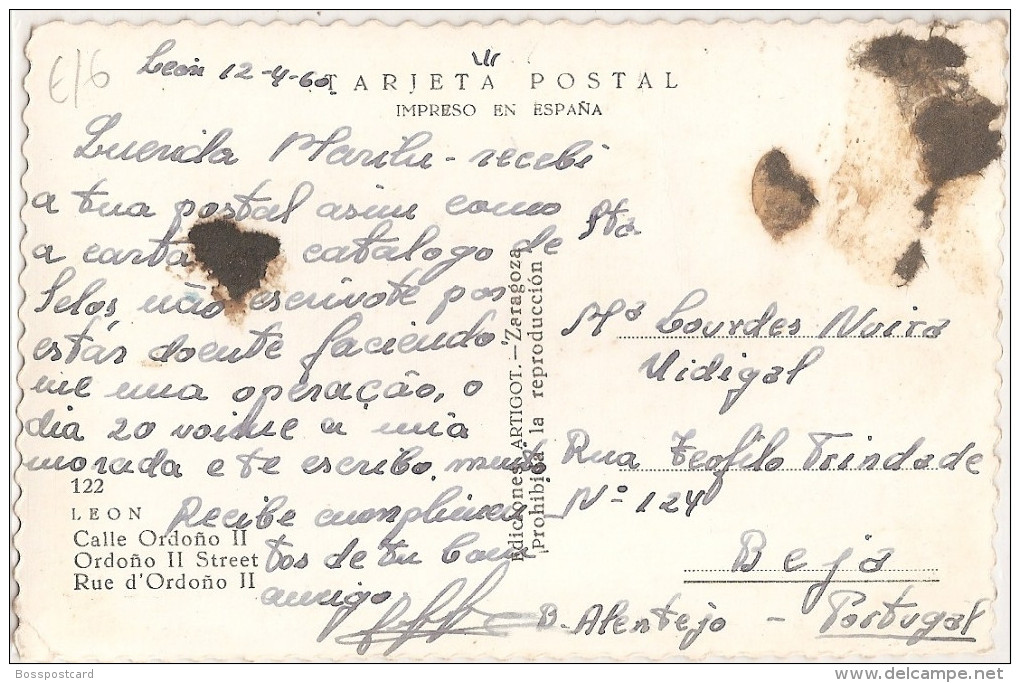 E/6
León 12-4-60
TARJETA POSTAL
IMPRESO EN ESPAÑA
Querida Marilu - recebi
a tua postal asim como
a carta catalogo de
Selos, não escrivote por
estar doente faciendo
me uma operação, o
dia 20 voime a mia
morada e te escribo,
Recibe cumplimen-
tos de tu bom
amigo
122
LEON
Calle Ordoño II
Ordoño II Street
Rue d'Ordoño II
Ediciones ARTIGOT.—Zaragoza
Prohibida la reproducción
Sta
Mª Lourdes Nuira
Vidigal
Rua Teofilo Trindade
Nº 124
Beja
B. Alentejo - Portugal
Bosspostcard
www.delcampe.net